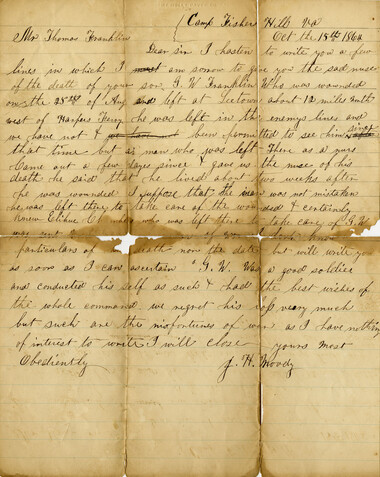 Camp Fishers Hill Va
Mr Thomas Franklin Oct the 18th 1864
Dear sir I hasten to write you a few
lines in which I must am sorrow to give you the sad nuse
of the death of your son, G. W. Franklin Who was wounded
on the 28th of Aug and left at Leetown about 12 miles
west of Harpers Ferry he was left in the enemys lines and
we have not been permitted to see him since
that time but a man who was left There as a gard
Came out a few dayes since & gave us the nuse of his
death he said that he lived about two weeks after
he was wounded I suppose that the man was not mistaken
he was left there to take care of the wounded & certainly
knew who was left there to take care of G. W.
particulars of death nor the date but will write you
as soon as I can ascertain G. W. Was a good soldier
and conducted his self as such & had the best wishes of
the whole command we regret his very much
but such are the misfortunes of war as I have nothing
of interest to write I will close yours most
Obediently J. H. Moody